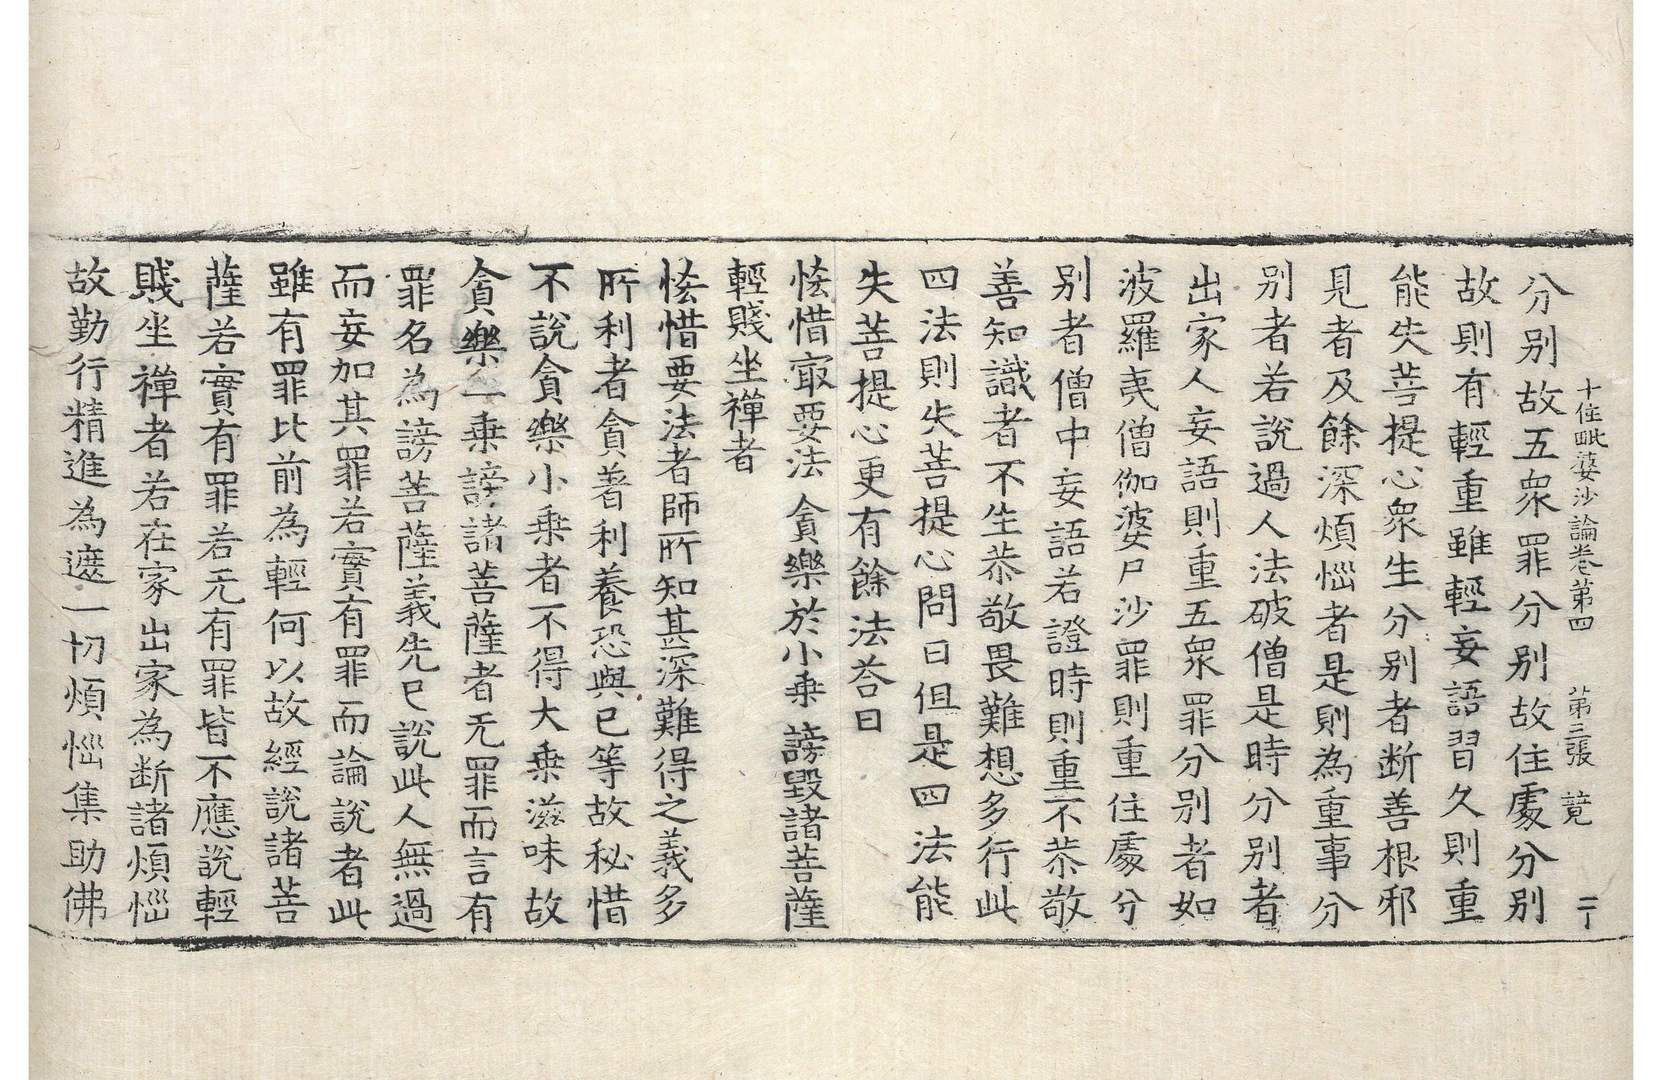 十住毗婆沙論卷第四　第三張　竟
分別故五衆罪分別故住處分別
故則有輕重雖輕妄語習久則重
能失菩提心衆生分別者斷善根邪
見者及餘深煩惱者是則為重事分
別者若說過人法破僧是時分別者
出家人妄語則重五衆罪分別者如
波羅夷僧伽婆尸沙罪則重住處分
別者僧中妄語若證時則重不恭敬
善知識者不生恭敬畏難想多行此
四法則失菩提心問曰但是四法能
失菩提心更有餘法荅曰
悋惜㝡要法　貪樂於小乗　謗毀諸菩薩
輕賤坐禪者
悋惜要法者師所知甚深難得之義多
所利者貪著利養恐與已等故秘惜
不說貪樂小乗者不得大乗滋味故
貪樂二乗謗諸菩薩者无罪而言有
罪名為謗菩薩義先已說此人無過
而妄加其罪若實有罪而論說者此
雖有罪比前為輕何以故經說諸菩
薩若實有罪若无有罪皆不應說輕
賤坐禪者若在家出家為斷諸煩惱
故勤行精進為遮一切煩惱集助佛